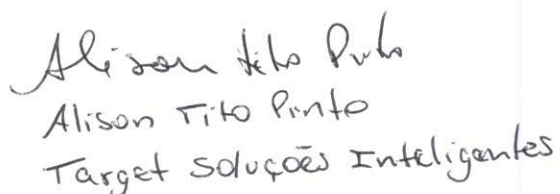 Alison Tito Pinto
Alison Tito Pinto
Target Soluções Inteligentes